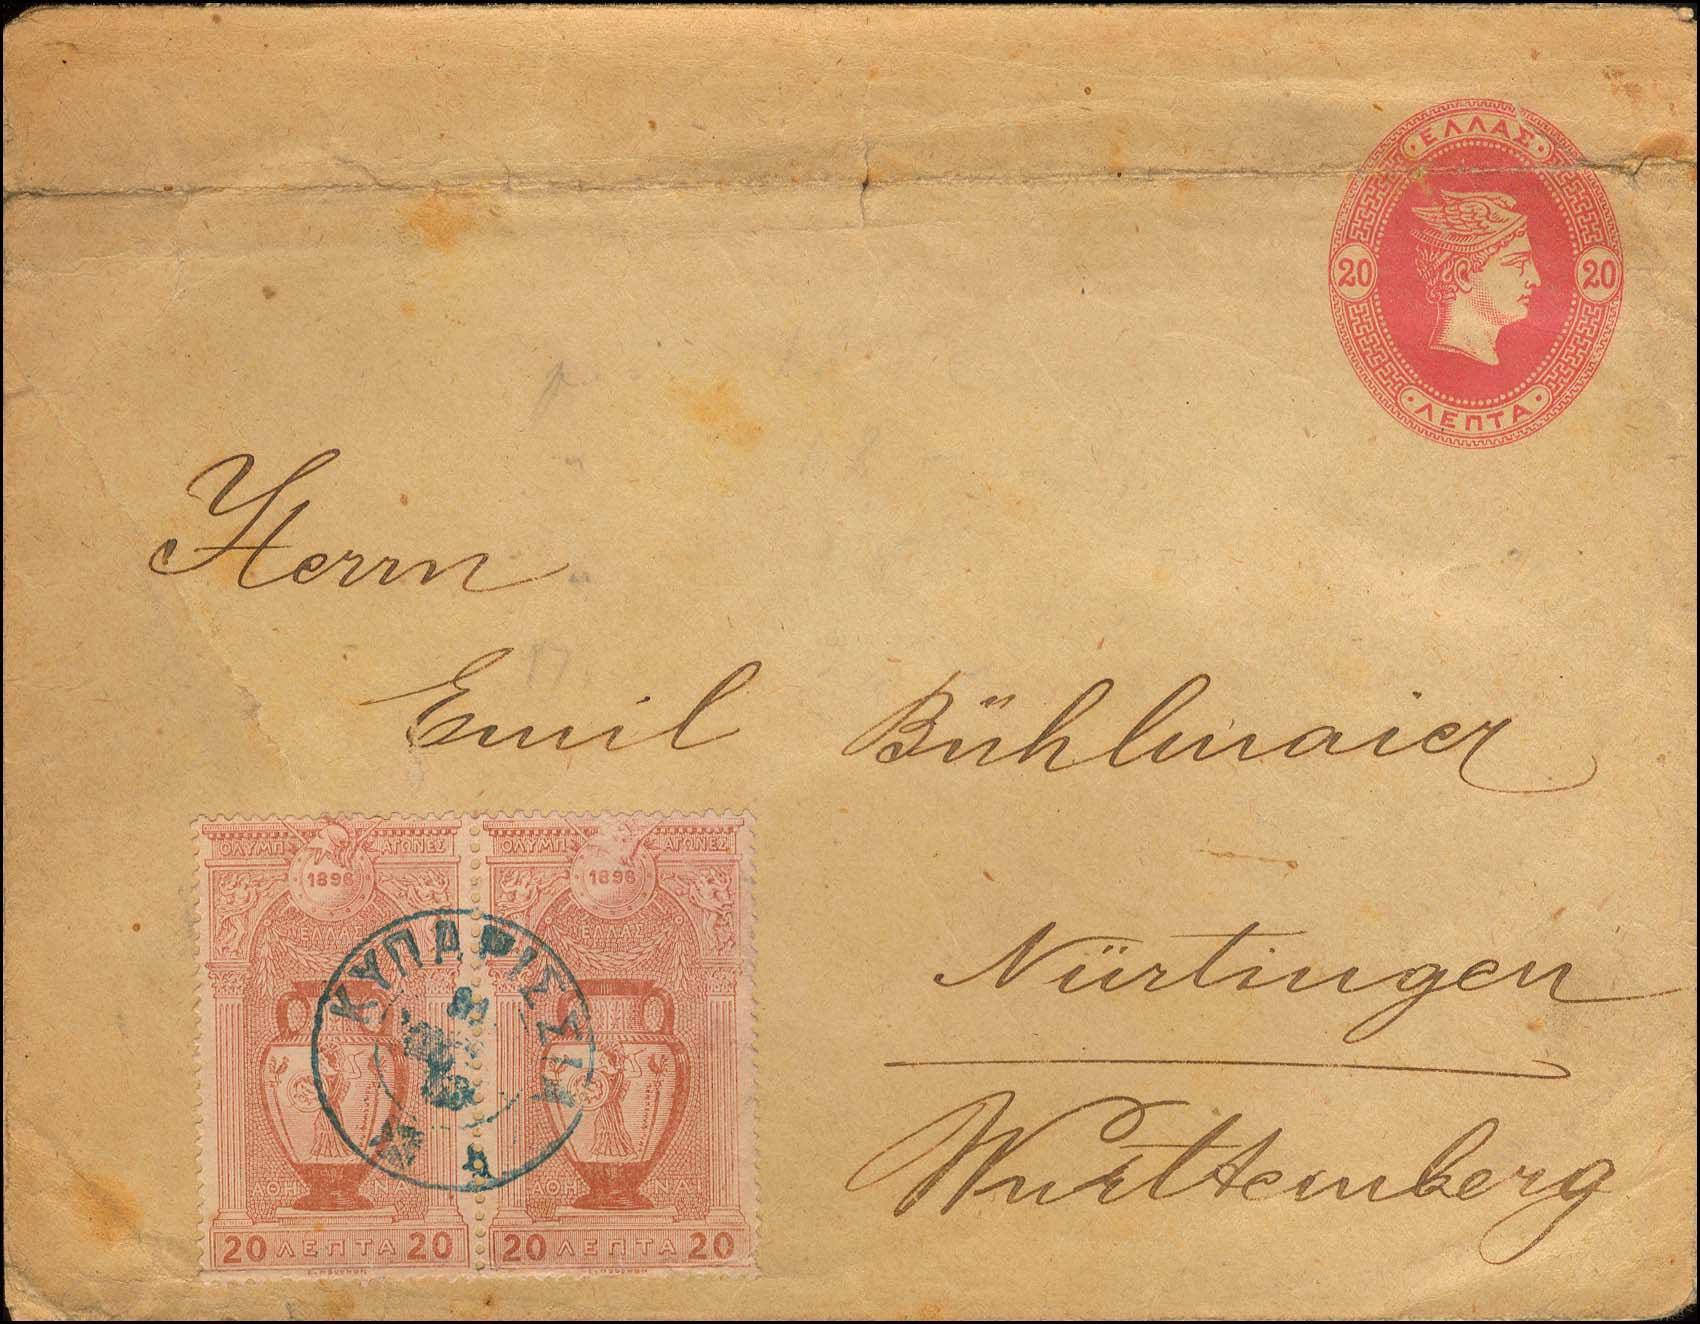 ΕΛΛΑΣ
20 20
ΛΕΠΤΑ
Herrn
Emil Bühlmaier
Nürtingen
Württemberg
ΟΛΥΜΠ ΑΓΩΝΕΣ
1896
ΕΛΛΑΣ
ΑΘΗΝΑΙ
20 ΛΕΠΤΑ 20
ΟΛΥΜΠ ΑΓΩΝΕΣ
1896
ΕΛΛΑΣ
ΑΘΗΝΑΙ
20 ΛΕΠΤΑ 20
ΚΥΠΑΡΙΣΣΙΑ